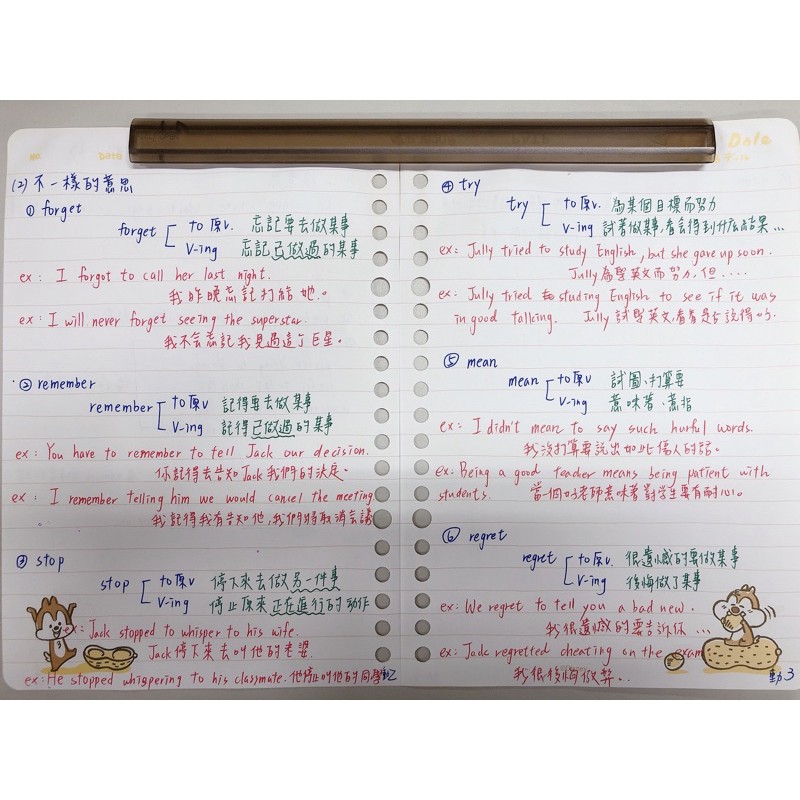 (2) 不一樣的意思
① forget
forget to原v. 忘記要去做某事
V-ing 忘記已做過的某事
ex: I forgot to call her last night.
我昨晚忘記打給她。
ex: I will never forget seeing the superstar.
我不會忘記我見過這個巨星。
② remember
remember to原v 記得要去做某事
V-ing 記得已做過的某事
ex: You have to remember to tell Jack our decision.
你記得去告知Jack我們的決定。
ex: I remember telling him we would cancel the meeting
我記得我有告知他,我們將取消會議
③ stop
stop to原v 停下來去做另一件事
V-ing 停止原來正在進行的動作
ex: Jack stopped to whisper to his wife.
Jack停下來去叫他的老婆
ex: He stopped whispering to his classmate. 他停止叫他的同學
動2
Date
④ try
try to原v. 為某個目標而努力
V-ing 試著做某事,看會得到什麼結果...
ex: Jully tried to study English, but she gave up soon.
Jully為學英文而努力,但....
ex: Jully tried studing English to see if it was
in good talking. Jully試學英文,看看是否說得好.
⑤ mean
mean to原v 試圖、打算要
V-ing 意味著、意指
ex: I didn't mean to say such hurful words.
我沒打算要說出如此傷人的話。
ex: Being a good teacher means being patient with
students. 當一個好老師意味著對學生要有耐心。
⑥ regret
regret to原v. 很遺憾的要做某事
V-ing 後悔做了某事
ex: We regret to tell you a bad new.
我很遺憾的要告訴你...
ex: Jack regretted cheating on the exam
我很後悔做弊..
動3